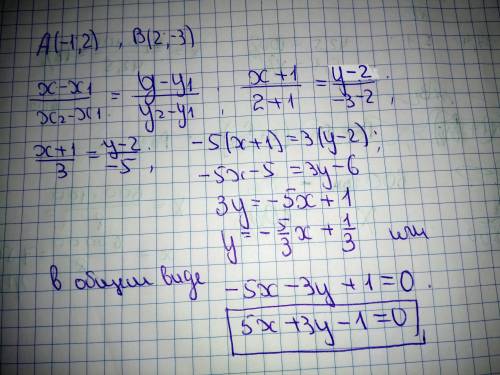 A(-1;2) , B(2;-3)
(x-x₁)/(x₂-x₁) = (y-y₁)/(y₂-y₁) ; (x+1)/(2+1) = (y-2)/(-3-2) ;
(x+1)/3 = (y-2)/(-5) ; -5(x+1)=3(y-2);
-5x-5 =3y-6
3y=-5x+1
y=-5/3x+1/3 или
в общем виде -5x-3y+1=0.
5x+3y-1=0